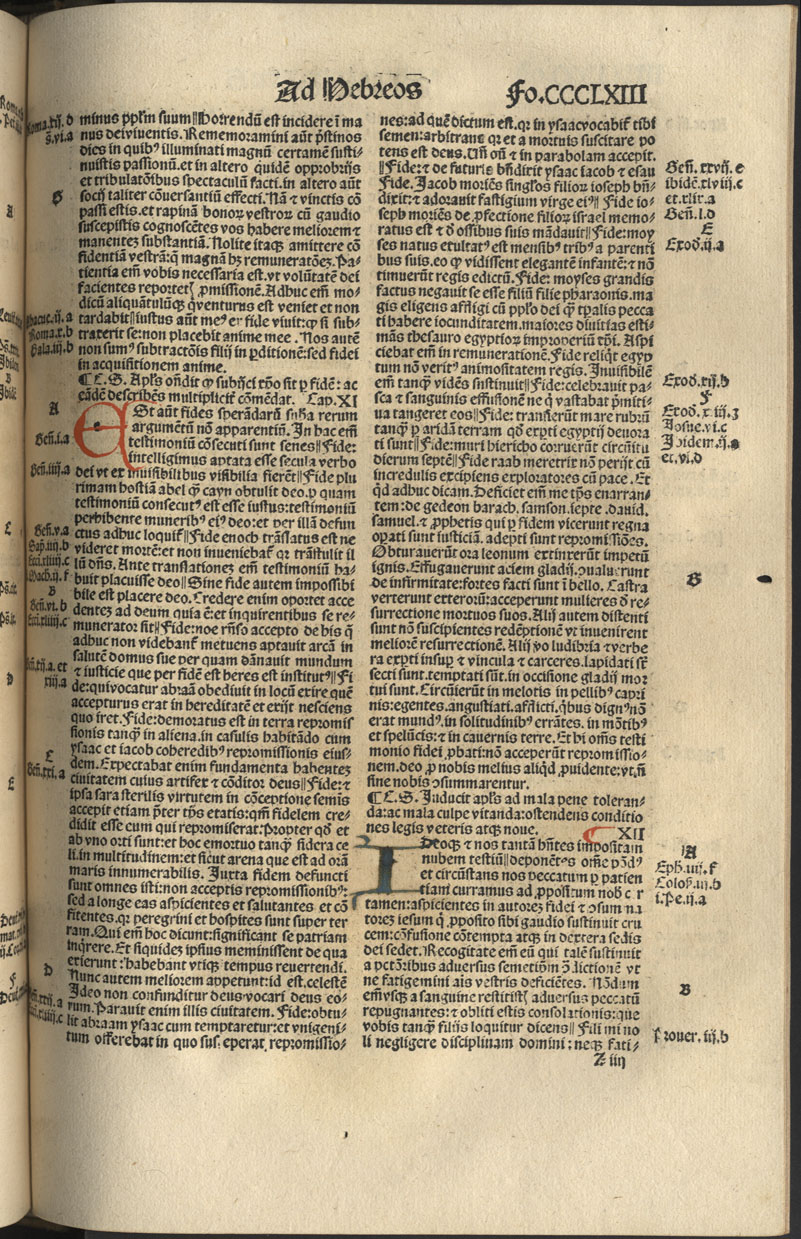 Ad Hebreos
Fo.CCCLXIII
minus ppl̄m suum‖Horrendū est incidere ī ma
nus dei viuentis. Rememoramini aūt p̄stinos
dies in quibꝰ illuminati magnū certamē susti-
nuistis passionū.et in altero quidē opprobrijs
et tribulatōibus spectaculū facti.in altero aūt
socij taliter cōuersantiū effecti. Nā ⁊ vinctis cō
passi estis.et rapinā bonoꝝ vestroꝝ cū gaudio
suscepistis cognoscētes vos habere meliorem ⁊
manentez substantiā. Nolite itaqꝫ amittere cō
fidentiā vestrā:q̄ magnā hꝫ remuneratōeꝫ. Pa-
tientia em̄ vobis necessaria est.vt volūtatē dei
facientes reportetꝭ ꝓmissionē. Adhuc em̄ mo-
dicū aliquātulūqꝫ q̄ venturus est veniet et non
tardabit‖iustus aūt meꝰ ex fide viuit:ꝙ si sub-
traxerit se:non placebit anime mee. Nos autē
non sumꝰ subtractōis filij in ꝑditionē:sed fidei
in acquisitionem anime.
¶C.S. Apl̄s oñdit ꝙ subijci xp̄o sit ꝑ fidē: ac
eādē describēs multiplicit̄ cōmēdat. Cap.XI
ESt aūt fides sperādarū sub̄a rerum
argumētū nō apparentiū. In hac em̄
testimoniū cōsecuti sunt senes‖Fide:
intelligimus aptata esse secula verbo
dei vt ex inuisibilibus visibilia fierēt‖Fide plu
rimam hostiā abel qꝫ cayn obtulit deo.ꝑ quam
testimoniū consecutꝰ est esse iustus:testimoniū
perhibente muneribꝰ eiꝰ deo:et per illā defun
ctus adhuc loquit̄‖Fide enoch trāslatus est ne
videret mortē:et non inueniebat̄ qꝛ trāstulit il
lū dn̄s. Ante translationez em̄ testimoniū ha-
buit placuisse deo‖Sine fide autem impossibi
bile est placere deo. Credere enim oportet acce
dentez ad deum quia ē:et inquirentibus se re-
munerator sit‖Fide:noe rn̄so accepto de his q̄
adhuc non videbant̄ metuens aptauit arcā in
salutē domus sue per quam dānauit mundum
⁊ iusticie que per fidē est heres est institutꝰ‖Fi
de:qui vocatur abraā obediuit in locū exire quē
accepturus erat in hereditatē et exijt nesciens
quo iret. Fide:demoratus est in terra repromis
sionis tanqꝫ in aliena.in casulis habitādo cum
ysaac et iacob coheredibꝰ repromissionis eius-
dem. Expectabat enim fundamenta habentez
ciuitatem cuius artifex ⁊ cōditor deus‖Fide:⁊
ipsa sara sterilis virtutem in cōceptione semis
accepit etiam p̄ter tp̄s etatis:qm̄ fidelem cre-
didit esse eum qui repromiserat:Propter qd̄ et
ab vno orti sunt:et hoc emortuo tanqꝫ sidera ce
li.in multitudinem:et sicut arena que est ad orā
maris innumerabilis. Iuxta fidem defuncti
sunt omnes isti:non acceptis repromissionibꝰ:
sed a longe eas aspicientes et salutantes et cō
fitentes.qꝛ peregrini et hospites sunt super ter
ram. Qui em̄ hoc dicunt:significant se patriam
inqrere. Et siquidez ipsius meminissent de qua
exierunt: habebant vtiqꝫ tempus reuertendi.
Nunc autem meliorem appetunt:id est.celestē
Ideo non confunditur deus vocari deus eo-
rum. Parauit enim illis ciuitatem. Fide:obtu-
lit abraam ysaac cum temptaretur:et vnigeni-
tum offerebat in quo susceperat repromissio-
nes:ad quē dictum est.qꝛ in ysaac vocabit̄ tibi
semen:arbitrans qꝛ et a mortuis suscitare po
tens est deus. Vn̄ eū ⁊ in parabolam accepit.
‖Fide:⁊ de futuris bn̄dixit ysaac iacob ⁊ esau
Fide. Jacob moriēs singl̄os filioꝝ ioseph bn̄-
dixit:⁊ adorauit fastigium virge eiꝰ‖ Fide io-
seph moriēs de ꝓfectione filioꝝ israel memo-
ratus est ⁊ đ ossibus suis mādauit‖Fide:moy
ses natus occultatꝰ est mensibꝰ tribꝰ a parenti
bus suis.eo ꝙ vidissent elegantē infantē:⁊ nō
timuerūt regis edictū. Fide: moyses grandis
factus negauit se esse filiū filie pharaonis.ma
gis eligens affligi cū pplo dei qꝫ tp̄alis pecca
ti habere iocunditatem.maiores diuitias esti-
māns thesauro egyptioꝝ improperiū xp̄i. Aspi
ciebat em̄ in remunerationē. Fide reliq̄t egyp
tum nō veritꝰ animositatem regis. Inuisibilem
em̄ tanqꝫ vidēs sustinuit‖Fide:celebrauit pa-
sca ⁊ sanguinis effusionē ne q̄ vastabat p̄miti-
ua tangeret eos‖Fide: transierūt mare rubrū
tanqꝫ ꝑ aridā terram qd̄ exꝑti egyptij deuora
ti sunt‖Fide:muri hiericho corruerūt circūitu
dierum septē‖Fide raab meretrix nō perijt cū
incredulis excipiens exploratores cū pace. Et
qd̄ adhuc dicam. Deficiet em̄ me tp̄s enarran-
tem:de gedeon barach.samson.iepte.dauid.
samuel.⁊ ꝓphetis qui ꝑ fidem vicerunt regna
oꝑati sunt iusticiā.adepti sunt repromissiōes.
Obturauerūt ora leonum extinxerūt impetū
ignis. Effugauerunt aciem gladij.ꝯualuerunt
de infirmitate:fortes facti sunt ī bello. Castra
verterunt exteroꝝ:acceperunt mulieres đ re-
surrectione mortuos suos. Alij autem distenti
sunt nō suscipientes redēptionē vt inuenirent
meliorē resurrectionē. Alij v̄o ludibria ⁊ verbe
ra exꝑti insuꝑ ⁊ vincula ⁊ carceres.lapidati sūt
secti sunt.temptati sūt.in occisione gladij mor
tui sunt. Circūierūt in melotis in pellibꝰ capri
nis:egentes.angustiati.afflicti.q̄bus dignꝰ nō
erat mundꝰ.in solitudinibꝰ errātes.in mōtibꝰ
et spelūcis:⁊ in cauernis terre. Et hi om̄s testi
monio fidei ꝓbati:nō acceperūt repromissio-
nem.deo ꝓ nobis melius aliqd̄ ꝓuidente:vt n̄
sine nobis ꝯsummarentur.
¶C.S. Inducit apl̄s ad mala pene toleran-
da:ac mala culpe vitanda:ostendens conditio
nes legis veteris atqꝫ noue.
XII
IDeoqꝫ ⁊ nos tantā hn̄tes impositam
nubem testiū:deponētes om̄e pōdꝰ
et circūstans nos peccatum ꝑ patien
tiam curramus ad ꝓpositum nob cer
tamen:aspicientes in autorez fidei ⁊ ꝯsum na
torez iesum q̄ ꝓposito sibi gaudio sustinuit cru
cem:cōfusione cōtempta atqꝫ in dextera sedis
dei sedet. Recogitate em̄ eū qui talē sustinuit
a pctōribus aduersus semetip̄m ꝯdictionē vt
ne fatigemini aīs vestris deficiētes. Nōdum
em̄ vsqꝫ a sanguine restitistꝭ aduersus peccatū
repugnantes:⁊ obliti estis consolationis:que
vobis tanqꝫ filijs loquitur dicens‖Fili mi no
li negligere disciplinam domini: neqꝫ fati-
Z iiij
B
A
Gen̄.i.a
Gen̄.iiij.a
Gen̄.v.a
B
Gen̄.vi.b
E
Gen̄.xxi.a
D
Gen̄.xxvij.e
ibidē.xlviij.c
et.xlix.a
Gen̄.l.d
E
Exod.ij.a
Exod.xij.b
F
Exod.xiiij.g
Josue.vi.c
Ibidem.ij.a
et.vi.d
B
A
Eph.iiij.f
Coloss.iij.b
i.Pe.ij.a
B
Prouer.iij.b